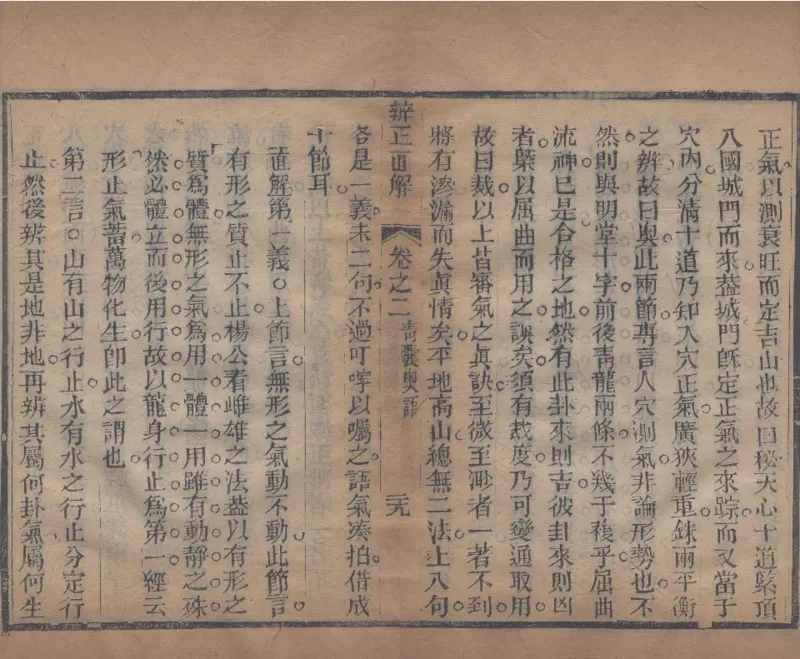 正氣以測衰旺而定吉山也故曰秘天心十道緊頂
八國城門而來葢城門旣定正氣之來踪而又當于
穴內分淸十道乃知入穴正氣廣狹輕重銖兩平衡
之辨故曰奥此兩節專言入穴測氣非論形勢也不
然則與明堂十字前後靑龍兩條不幾于複乎屈曲
流神已是合格之地然有此卦來則吉彼卦來則凶
者槩以屈曲而用之誤矣須有裁度乃可變通取用
故曰裁以上皆審氣之眞訣至微至渺者一著不到
將有滲漏而失眞情矣平地高山總無二法上八句
辨正直解 卷之二 靑囊奥語 二九
各是一義末二句不過叮嚀以囑之語氣凑拍借成
十節耳
直解第一義〇上節言無形之氣動不動此節言
有形之質止不止楊公看雌雄之法葢以有形之
質爲體無形之氣爲用一體一用雖有動靜之殊
然必體立而後用行故以龍身行止爲第一經云
形止氣蓄萬物化生卽此之謂也
第二言〇山有山之行止水有水之行止分定行
止然後辨其是地非地再辨其屬何卦氣屬何生